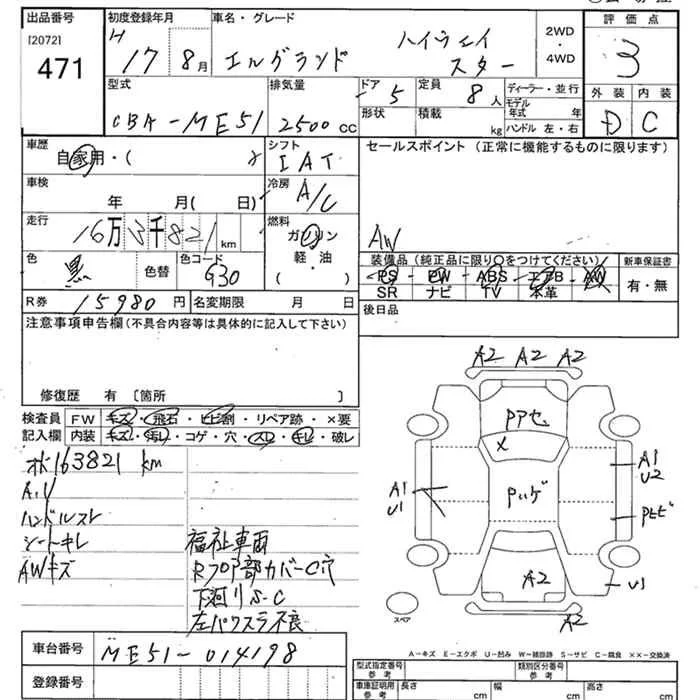 出品番号
[2072]
471
初度登録年月
H 17年 8月
車名・グレード
エルグランド ハイウェイスター
2WD
・
4WD
評価点
3
外装 内装
D C
型式
CBA-ME51
排気量
2500 cc
ドア 5
定員 8人
形状
積載 kg
ディーラー・並行
モデル年式 年
ハンドル 左・右
車歴
自家用・( )
シフト
IAT
車検
年 月( 日)
冷房
A/C
走行
16万3千821 km
燃料
ガソリン
軽・油
( )
色
黒
色替
色コード
G30
R券 15980円
名変期限 月 日
セールスポイント(正常に機能するものに限ります)
AW
装備品(純正品に限り○をつけてください)
PS PW ABS エアB AW
SR ナビ TV 本革
新車保証書
有・無
後日品
注意事項申告欄(不具合内容等は具体的に記入して下さい)
修復歴 有 [箇所 ]
検査員記入欄
FW キズ・飛石・ヒビ割・リペア跡・×要
内装 キズ・汚レ・コゲ・穴・スレ・キレ・破レ
163821 km
ハンドルスレ
シートキレ
AWキズ
福祉車両
Rフロア部カバーC穴
下廻りS・C
左パワスラ不良
A2 A2 A2
Pアセ
X
A1
U1
A1
U2
Pヒビ
A2
U1
A2
スペア
A-キズ E-エクボ U-凹み W-補修跡 S-サビ C-腐食 ××-交換済
車台番号 ME51-014198
登録番号
型式指定番号 参考
類別区分番号 参考
車庫証明用 参考
長さ cm
幅 cm
高さ cm